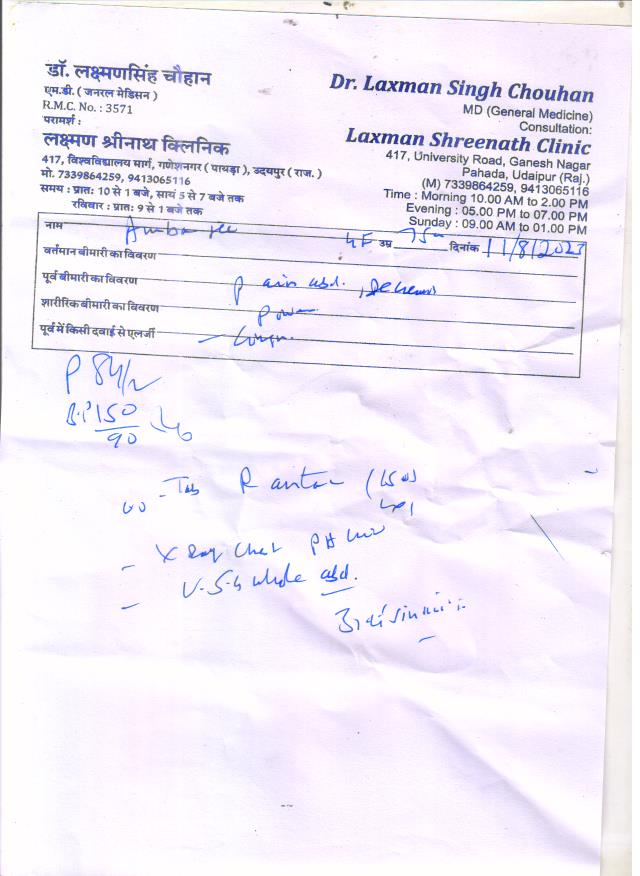 डॉ. लक्ष्मणसिंह चौहान
एम.डी. ( जनरल मेडिसन )
R.M.C. No. : 3571
परामर्श :
लक्ष्मण श्रीनाथ क्लिनिक
417, विश्वविद्यालय मार्ग, गणेशनगर ( पायड़ा ), उदयपुर ( राज. )
मो. 7339864259, 9413065116
समय : प्रातः 10 से 1 बजे, सायं 5 से 7 बजे तक
रविवार : प्रातः 9 से 1 बजे तक
Dr. Laxman Singh Chouhan
MD (General Medicine)
Consultation:
Laxman Shreenath Clinic
417, University Road, Ganesh Nagar
Pahada, Udaipur (Raj.)
(M) 7339864259, 9413065116
Time : Morning 10.00 AM to 2.00 PM
Evening : 05.00 PM to 07.00 PM
Sunday : 09.00 AM to 01.00 PM
नाम उम्र 75 दिनांक 11/8/2023
वर्तमान बीमारी का विवरण
पूर्व बीमारी का विवरण Pain abd.
शारीरिक बीमारी का विवरण
पूर्व में किसी दवाई से एलर्जी
P 84/
B.P 150
90
- Tab Rantac (150)
- X Ray Chest PA view
- U.S.G whole abd.